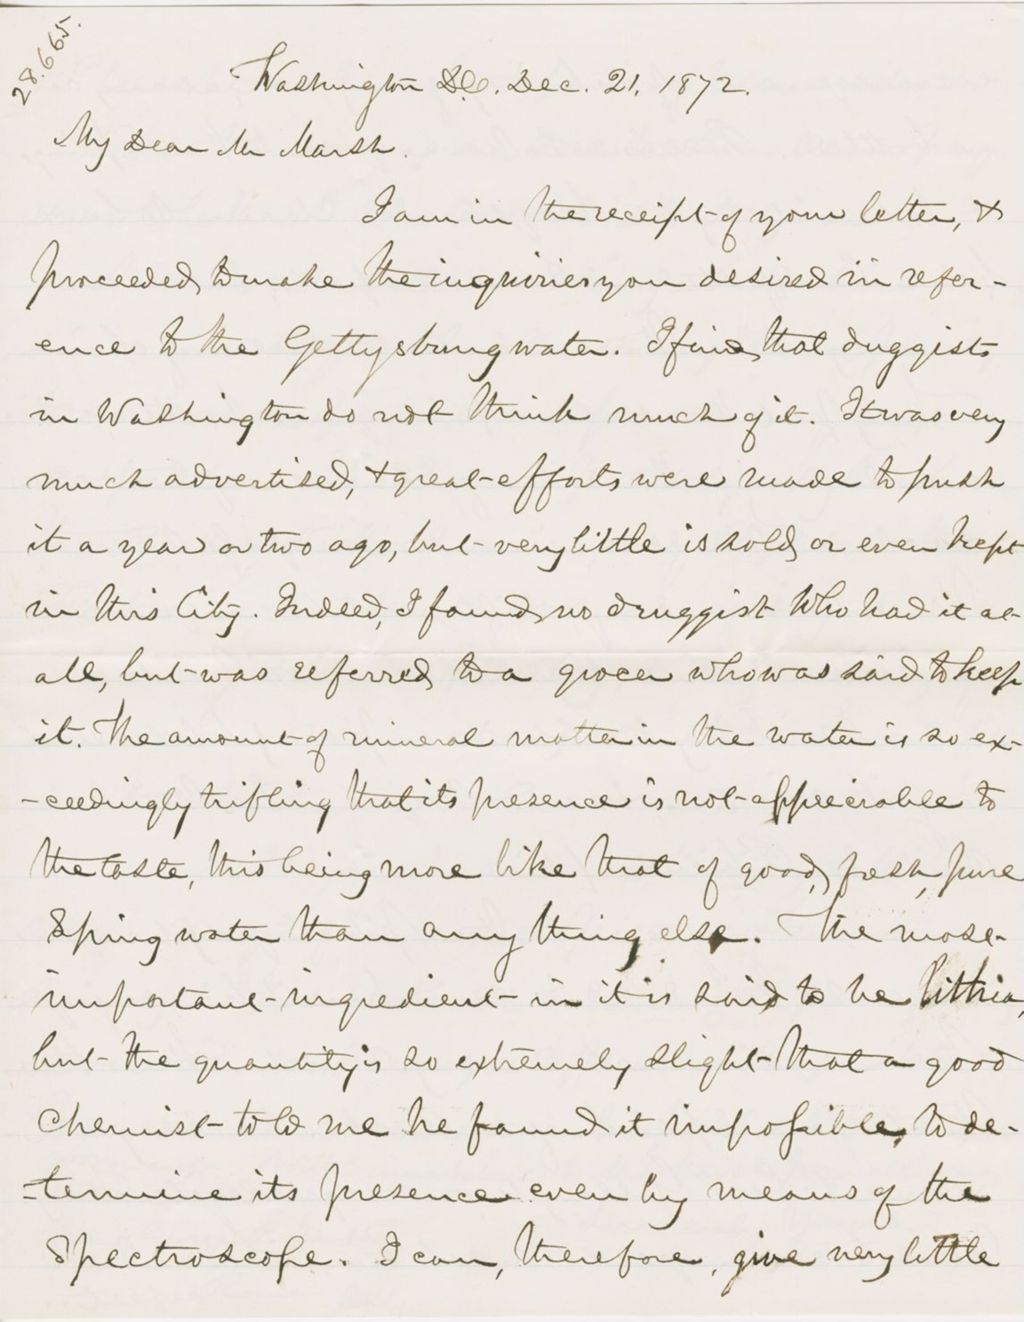 28.665.
Washington D.C. Dec. 21, 1872.
My Dear Mr Marsh.
I am in the receipt of your letter, &
proceeded to make the inquiries you desired in refer-
ence to the Gettysburg water. I find that duggists
in Washington do not think much of it. It was very
much advertised, & great efforts were made to push
it a year or two ago, but very little is sold, or even kept
in this City. Indeed, I found no druggist who had it at
all, but was referred to a grocer who was said to keep
it. The amount of mineral matter in the water is so ex-
-ceedingly trifling that its presence is not appreciable to
the taste, this being more like that of good, fresh, pure
Spring water than any thing else. The most
important ingredient in it is said to be lithia,
but the quantity is so extremely slight that a good
Chemist told me he found it impossible, to de-
=termine its presence even by means of the
Spectroscope. I can, therefore, give very little